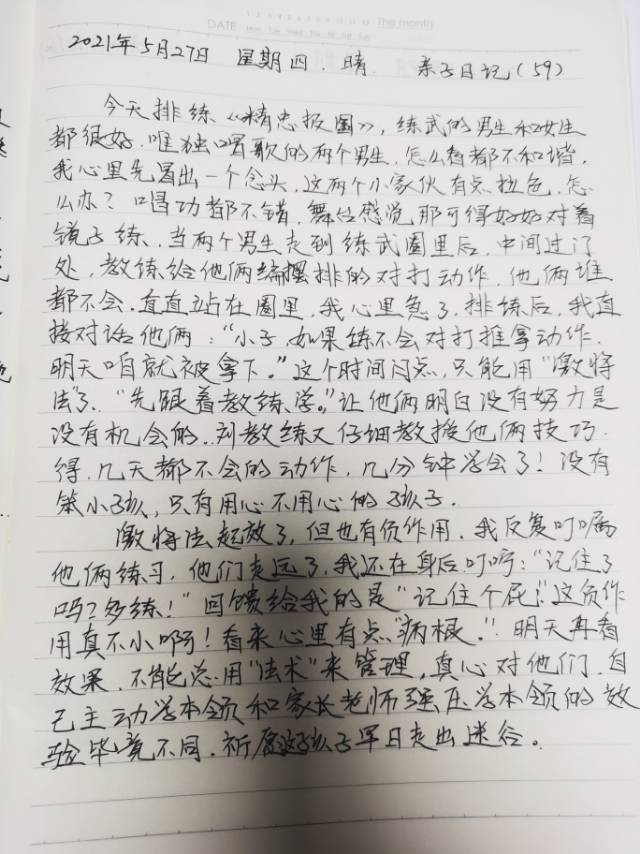 The month
DATE
2021年5月27日 星期四 晴 亲子日记(59)
今天排练《精忠报国》,练武的男生和女生
都很好.唯独唱歌的两个男生,怎么看都不和谐.
我心里先冒出一个念头,这两个小家伙有点拉色,怎
么办?唱功都不错,舞台感觉那可得好好对着
镜子练.当两个男生走到练武圈里后,中间过门
处,教练给他俩编排的对打动作,他俩谁
都不会.直直立站在圈里,我心里急了,排练后,我直
接对话他俩:“小子,如果练不会对打推拿动作,
明天咱就被拿下。”这个时间闪点,只能用“激将
法”了.“先跟着教练学。”让他俩明白没有努力是
没有机会的.刘教练又仔细教授他俩技巧.
得,几天都不会的动作,几分钟学会了!没有
笨小孩,只有用心不用心的孩子.
激将法起效了,但也有负作用.我反复叮嘱
他俩练习,他们走远了,我还在身后叮咛:“记住了
吗?多练!”回馈给我的是“记住个屁!”这负作
用真不小啊!看来心里有点“病根”.明天再看
效果.不能总用“法术”来管理,真心对他们.自
己主动学本领和家长老师强压学本领的效
验毕竟不同.祈愿这孩子早日走出迷谷。